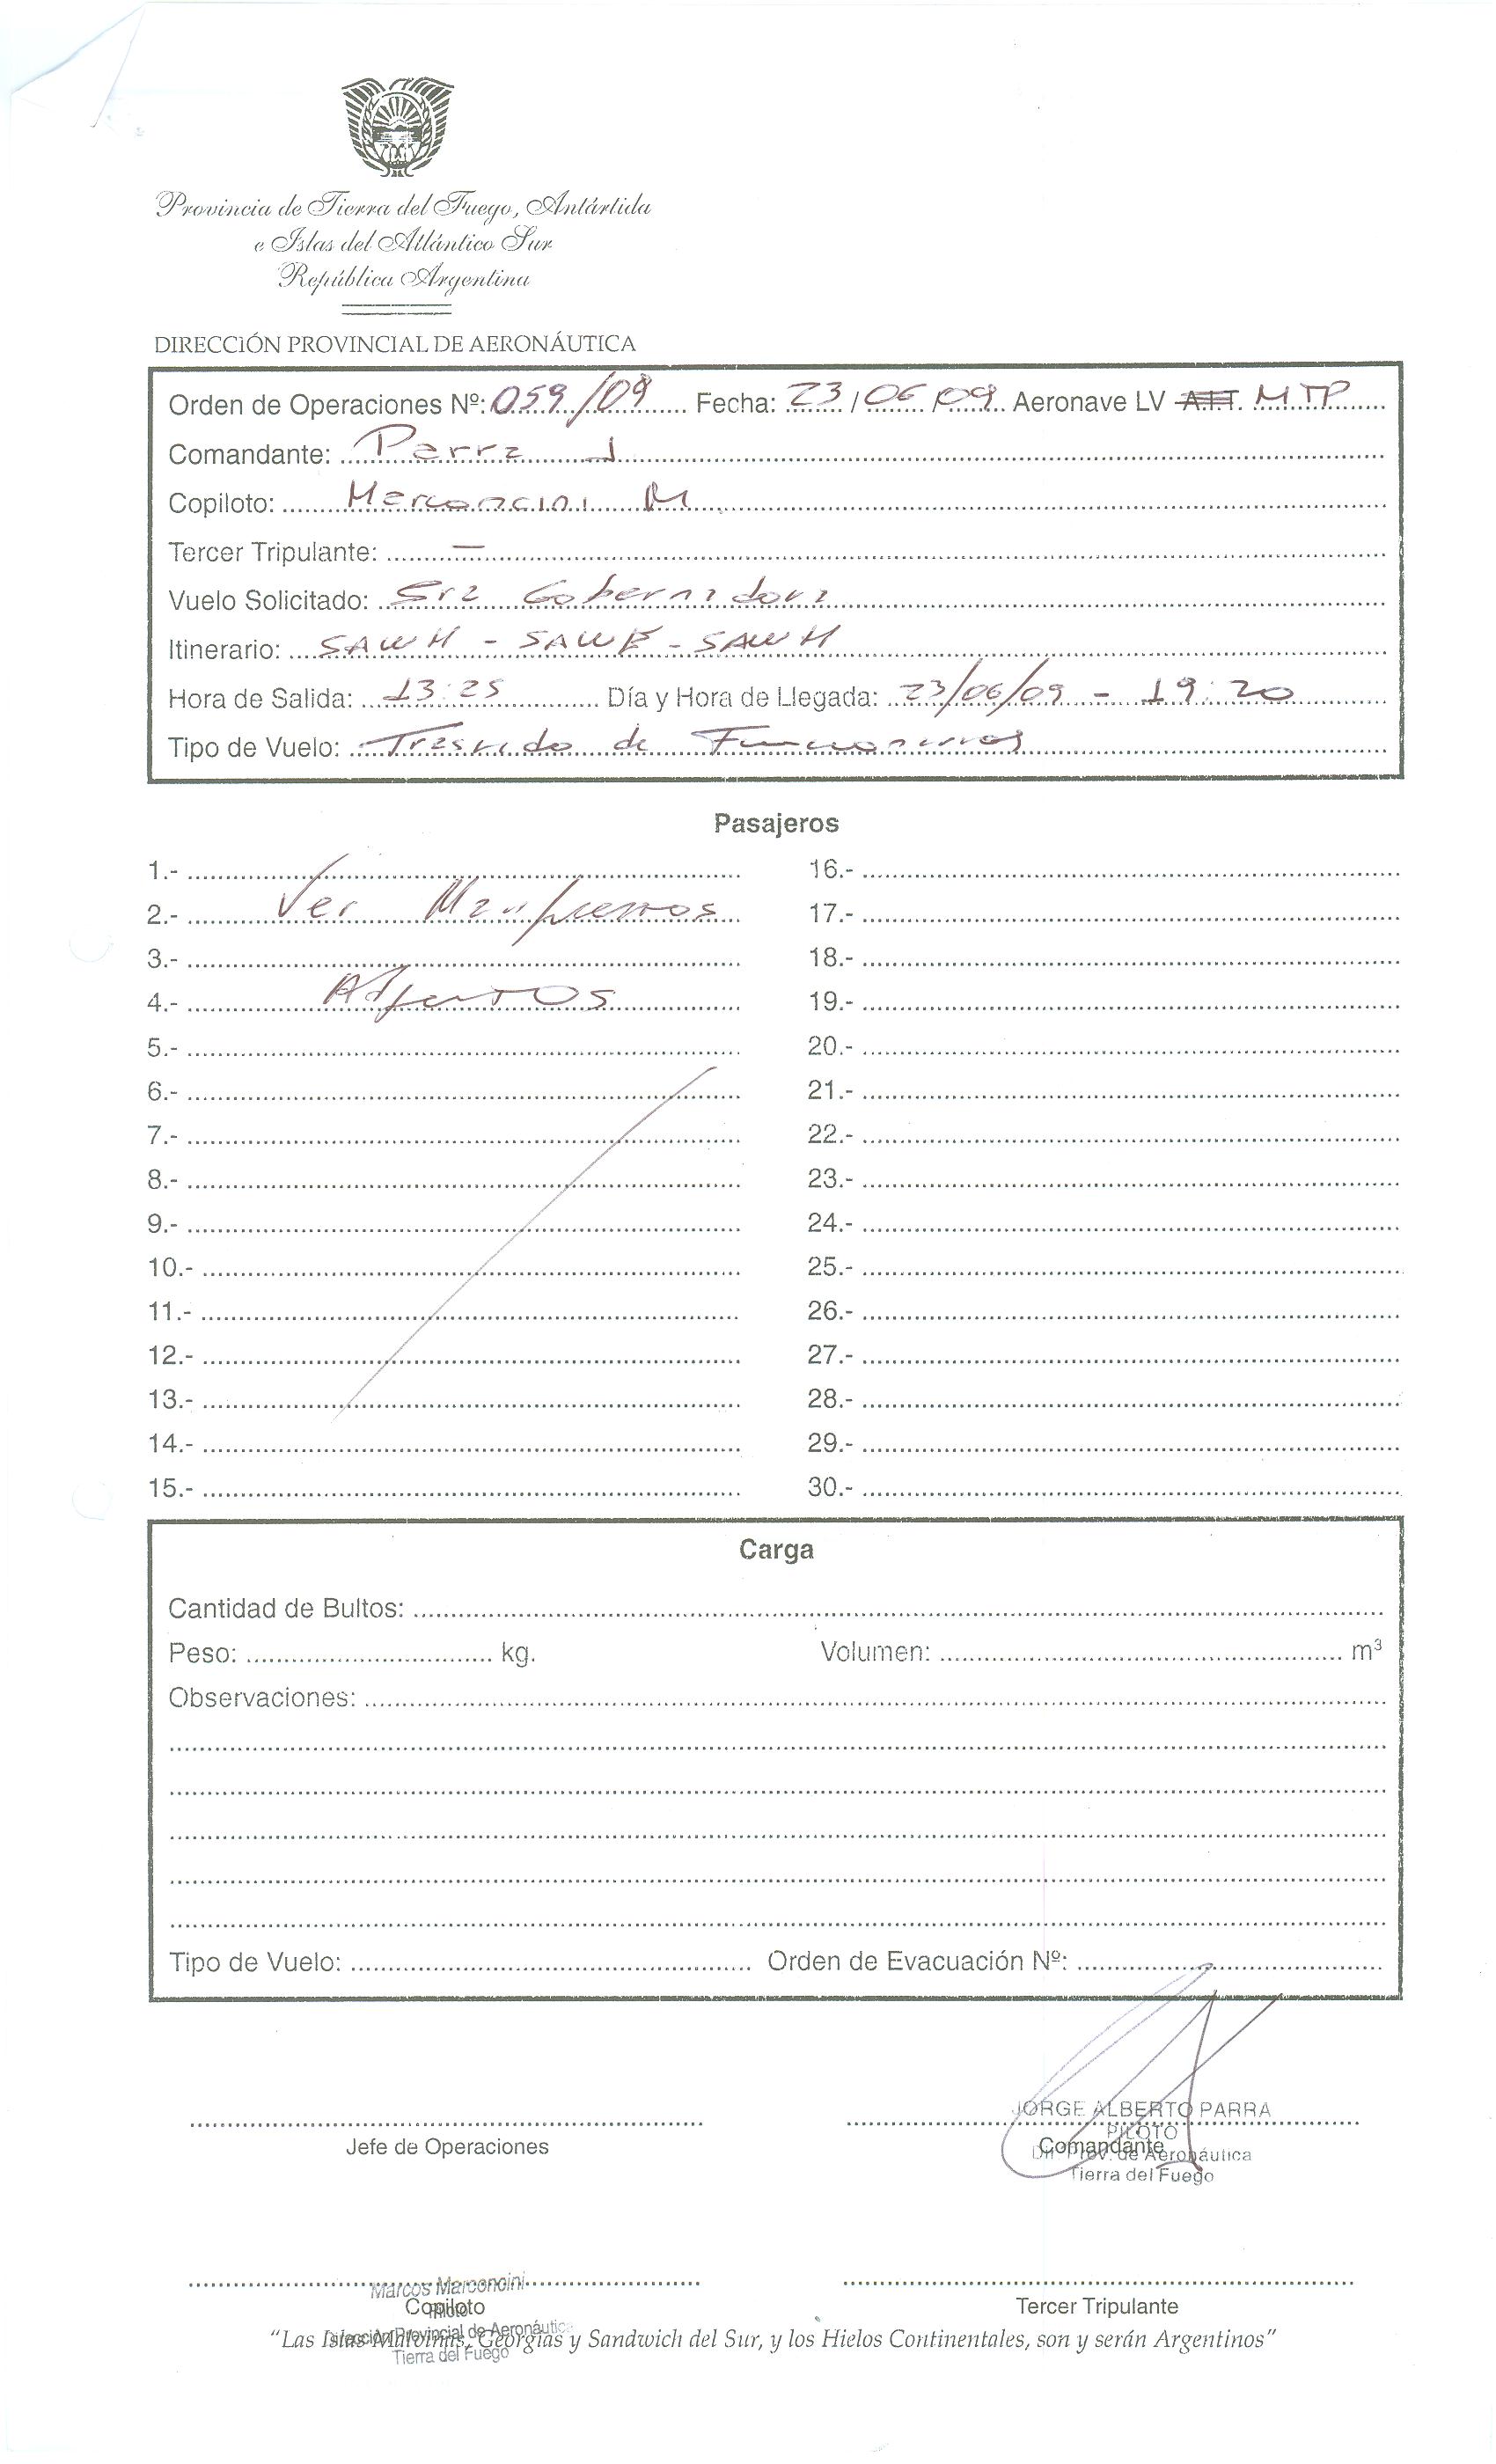 Provincia de Tierra del Fuego, Antártida
e Islas del Atlántico Sur
República Argentina
DIRECCIÓN PROVINCIAL DE AERONÁUTICA
Orden de Operaciones Nº: 059/09 Fecha: 23/06/09 Aeronave LV A.I.T. MTP
Comandante: Parra J
Copiloto: Marconcini M
Tercer Tripulante: —
Vuelo Solicitado: Sra Gobernadora
Itinerario: SAWH - SAWE - SAWH
Hora de Salida: 13:25 Día y Hora de Llegada: 23/06/09 - 19:20
Tipo de Vuelo: Traslado de Funcionarios
Pasajeros
1.- 16.-
2.- Ver Manifiestos 17.-
3.- 18.-
4.- Adjuntos 19.-
5.- 20.-
6.- 21.-
7.- 22.-
8.- 23.-
9.- 24.-
10.- 25.-
11.- 26.-
12.- 27.-
13.- 28.-
14.- 29.-
15.- 30.-
Carga
Cantidad de Bultos:
Peso: kg. Volumen: m³
Observaciones:
Tipo de Vuelo: Orden de Evacuación Nº:
JORGE ALBERTO PARRA
PILOTO
Jefe de Operaciones Comandante
Dir. Prov. de Aeronáutica
Tierra del Fuego
Marcos Marconcini
Copiloto Tercer Tripulante
Piloto
Dirección Provincial de Aeronáutica
"Las Islas Malvinas, Georgias y Sandwich del Sur, y los Hielos Continentales, son y serán Argentinos"
Tierra del Fuego